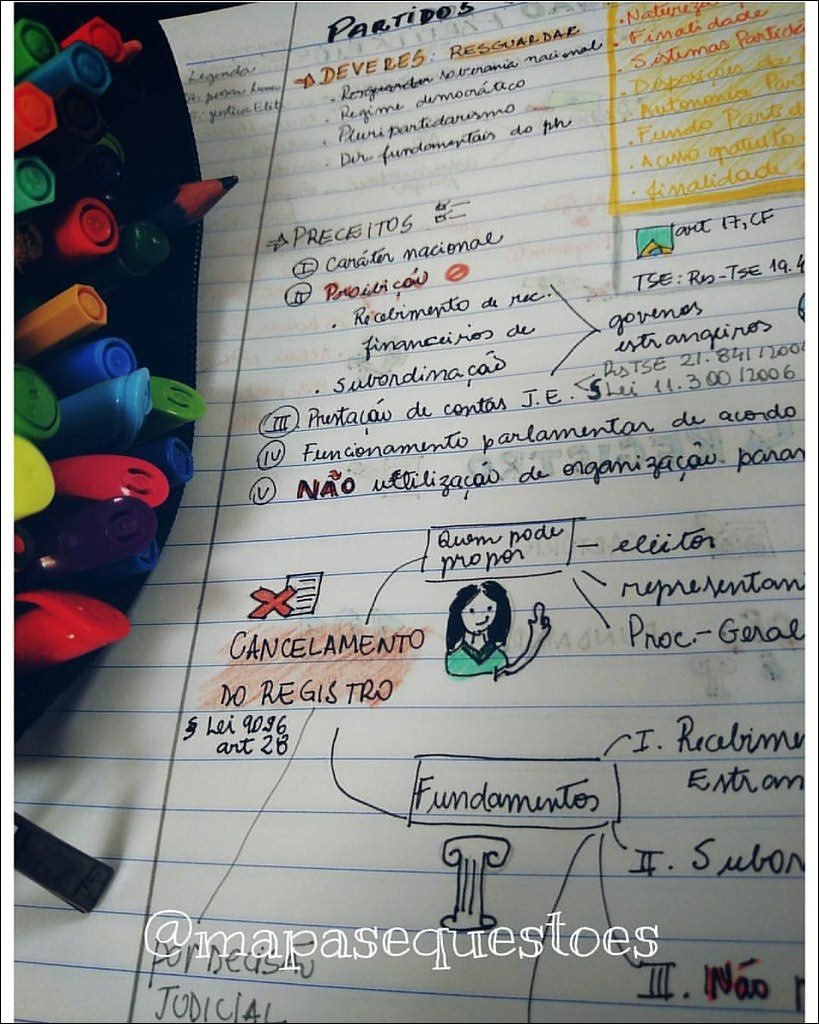 PARTIDOS
Legenda
→ DEVERES: RESGUARDAR
. Resguardar soberania nacional
. Regime democrático
. Pluripartidarismo
. Dir fundamentais do ph
. Natureza
. Finalidade
. Sistemas Partidá
. Disposições da
. Autonomia Part
. Fundo Parti d
. Acesso gratuito
. finalidade
→ PRECEITOS
I Caráter nacional
II Proibição
. Recebimento de rec.
financeiros de
. Subordinação
governos
estrangeiros
art 17, CF
TSE: Res-TSE 19.4
III Prestação de contas J.E.
RsTSE 21.841/200
§ Lei 11.300/2006
IV Funcionamento parlamentar de acordo
V NÃO utilização de organização para
Quem pode
propor
eleitor
representan
Proc.-Geral
CANCELAMENTO
DO REGISTRO
§ Lei 9096
art 28
Fundamentos
I. Recebime
Estran
II. Subor
III. Não
POR DECISÃO
JUDICIAL
@mapasequestoes